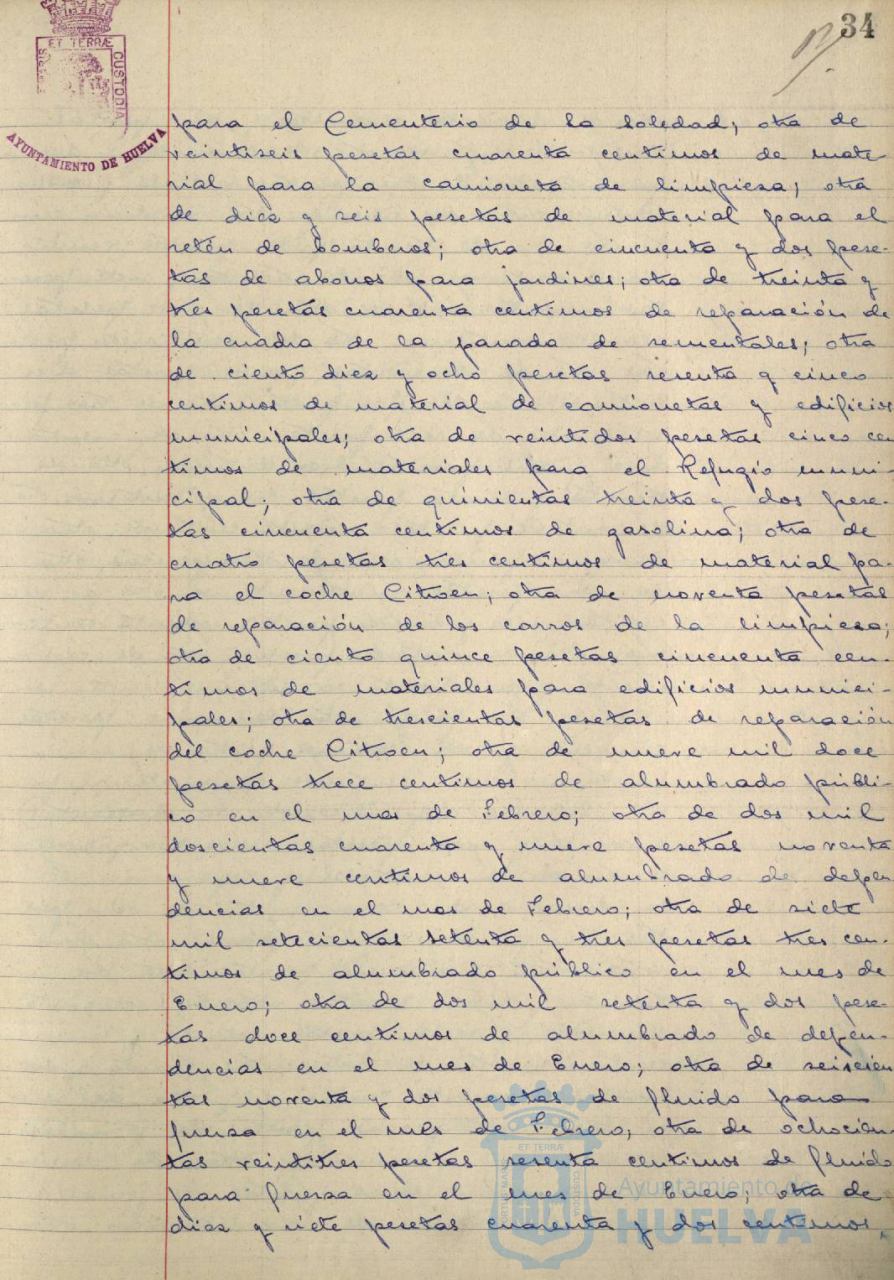 34
ET TERRÆ
CUSTODIA
AYUNTAMIENTO DE HUELVA
para el Cementerio de la Soledad; otra de
veintiseis pesetas cuarenta centimos de mate-
rial para la camioneta de limpiesa; otra
de diez y seis pesetas de material para el
retén de bomberos; otra de cincuenta y dos pese-
tas de abonos para jardines; otra de treinta y
tres pesetas cuarenta centimos de reparación de
la cuadra de la parada de sementales; otra
de ciento diez y ocho pesetas sesenta y cinco
centimos de material de camionetas y edificios
municipales; otra de veintidos pesetas cinco cen
timos de materiales para el Refugio muni-
cipal; otra de quinientas treinta y dos pese-
tas cincuenta centimos de gasolina; otra de
cuatro pesetas tres centimos de material pa-
ra el coche Citroen; otra de noventa pesetas
de reparación de los carros de la limpiesa;
otra de ciento quince pesetas cincuenta cen-
timos de materiales para edificios munici-
pales; otra de trescientas pesetas de reparación
del coche Citroen; otra de nueve mil doce
pesetas trece centimos de alumbrado públi-
co en el mes de Febrero; otra de dos mil
doscientas cuarenta y nueve pesetas noventa
y nueve centimos de alumbrado de depen
dencias en el mes de Febrero; otra de siete
mil setecientas setenta y tres pesetas tres cen-
timos de alumbrado público en el mes de
Enero; otra de dos mil setenta y dos pese-
tas doce centimos de alumbrado de depen-
dencias en el mes de Enero; otra de seiscien
tas noventa y dos pesetas de fluido para
fuersa en el mes de Febrero; otra de ochocien-
tas veintitres pesetas sesenta centimos de fluido
para fuersa en el mes de Enero; otra de
diez y siete pesetas cuarenta y dos centimos
ET TERRÆ
Ayuntamiento de
HUELVA